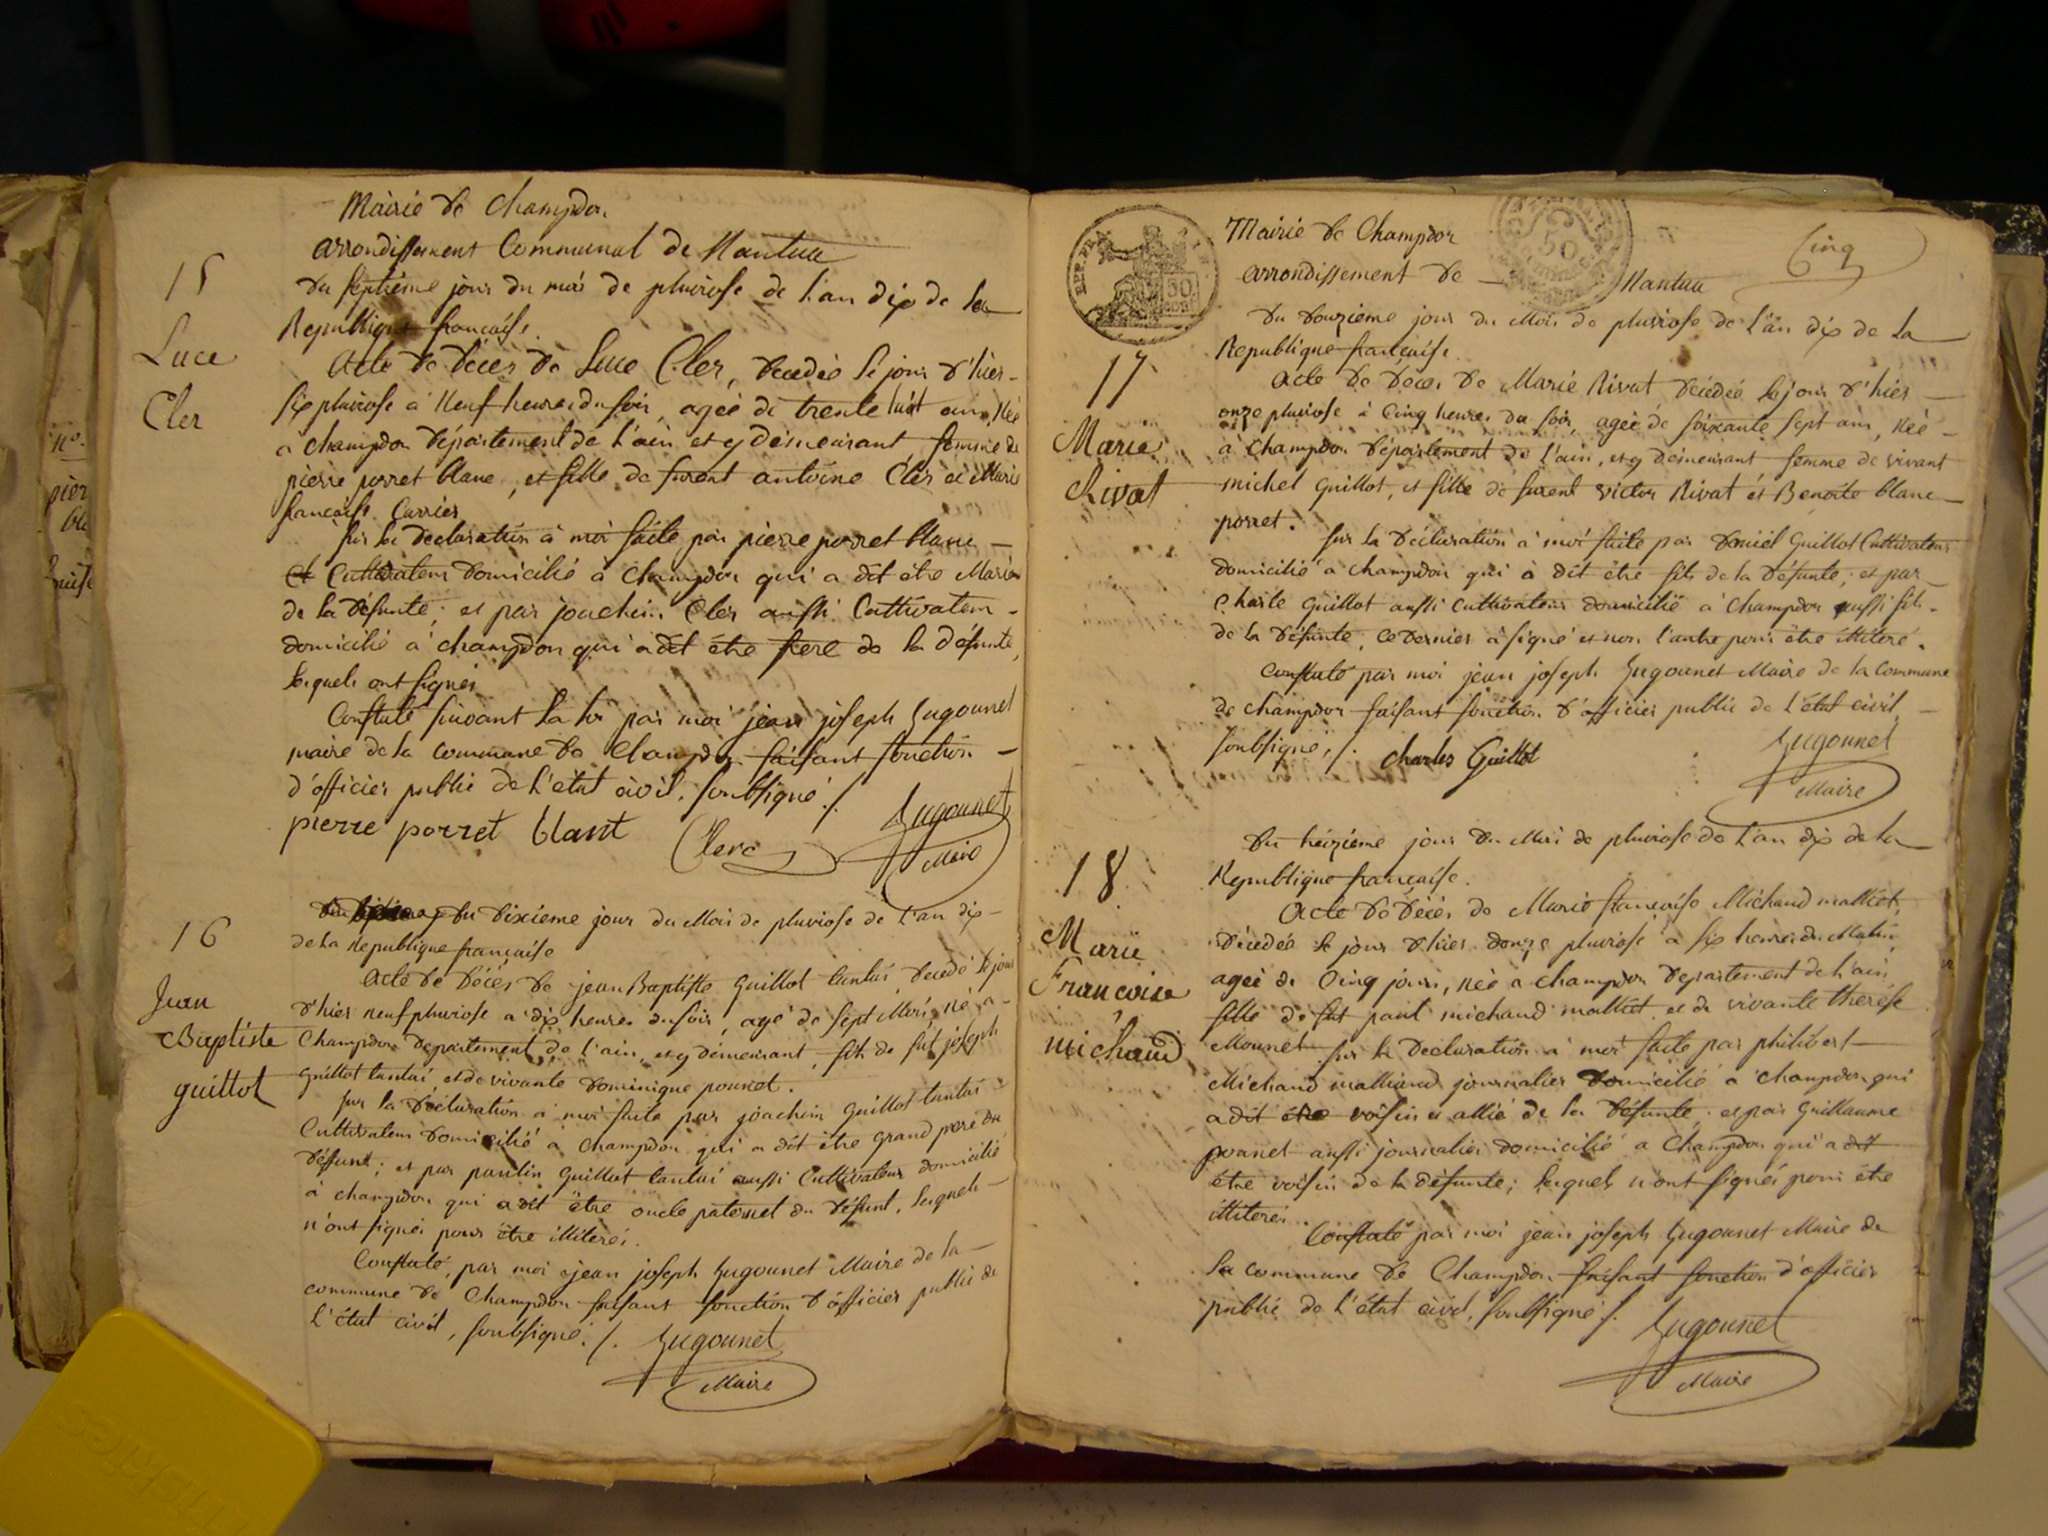 Mairie de Champdor
arrondissement Communal de Nantua
15
du septième jour du mois de pluviose de l'an dix de la
Republique française.
Luce
Cler
acte de décès de Luce Cler, décédée le jour d'hier
six pluviose à neuf heures du soir, agée de trente huit ans, née
à champdor département de l'ain et y demeurant, femme de
pierre porret blanc, et fille de furent antoine Cler et Marie
française Carrier
sur la declaration à moi faite par pierre porret blanc
Cultivateur domicilié à Champdor qui a dit être Marié
de la défunte; et par joachim Cler aussi Cultivateur
domicilié à champdor qui a dit être frere de la défunte,
lesquels ont signés
Constaté suivant la loi par moi jean joseph Gugonnet
maire de la commune de Champdor faisant fonction
d'officier public de l'état civil, soubsigné ./.
pierre porret blant Clerc Gugonnet
Maire
16
Du dixieme jour du Mois de pluviose de l'an dix
de la Republique française
Jean
Baptiste
guillot
acte de décès de jean Baptiste Guillot tantai, decedé le jour
d'hier neuf pluviose a dix heures du soir, agé de sept Mois, né a
Champdor departement de l'ain, et y demeurant, fils de fut joseph
Guillot tantai, et de vivante Dominique pounet.
sur la déclaration à moi faite par joachim Guillot tantai
Cultivateur domicilié à champdor qui a dit être grand pere du
deffunt; et par paulin Guillot tantai aussi Cultivateur domicilié
à champdor qui a dit être oncle paternel du défunt, lesquels
n'ont signés pour être illiterés.
Constaté, par moi jean joseph Gugonnet Maire de la
commune de Champdor faisant fonction d'officier public de
l'état civil, soubsigné ./. Gugonnet
Maire
Mairie de Champdor
Cinq
arrondissement de Nantua
50
du douzieme jour du Mois de pluviose de l'an dix de la
Republique française.
17
Marie
Rivat
acte de décès de Marie Rivat décédée le jour d'hier
onze pluviose à Cinq heures du soir, agée de soixante sept ans, née
à Champdor département de l'ain, et y demeurant femme de vivant
michel Guillot, et fille de furent victor Rivat et Benoite blanc
porret.
sur la déclaration à moi faite par Daniel Guillot Cultivateur
domicilié à champdor qui à dit être fils de la défunte; et par
Charle Guillot aussi Cultivateur domicilié à champdor aussi fils
de la défunte; ce dernier à signé et non l'autre pour être illiteré.
Constaté par moi jean joseph Gugonnet Maire de la Commune
de Champdor faisant fonction d'officier public de l'état civil,
soubsigné, ./. Charles Guillot Gugonnet
Maire
18
Du treizieme jour du Mois de pluviose de l'an dix de la
Republique française.
Marie
Francoise
michaud
Acte de décès de Marie française Michaud malliet,
décédée le jour d'hier douze pluviose à six heures du Matin,
agée de Cinq jours, née a champdor departement de l'ain,
fille de fut paul michaud malliet et de vivante therése
Mounet. sur la déclaration à moi faite par philibert
Michaud malliand journalier domicilié à champdor qui
a dit être voisin et allié de la défunte, et par Guillaume
pounet aussi journalier domicilié a Champdor qui a dit
être voisin de la défunte; lesquels n'ont signés pour être
illiterés.
Constaté par moi jean joseph Gugonnet Maire de
la commune de Champdor faisant fonction d'officier
public de l'état civil, soubsigné ./. Gugonnet
Maire